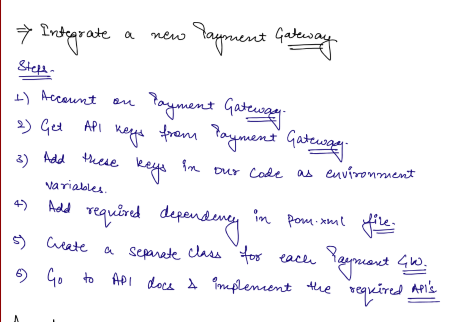 ⇒ Integrate a new Payment Gateway
Steps -
1) Account on Payment Gateway.
2) Get API keys from Payment Gateway.
3) Add these keys in our code as environment
variables.
4) Add required dependency in pom.xml file.
5) Create a separate class for each Payment GW.
6) Go to API docs & implement the required API's